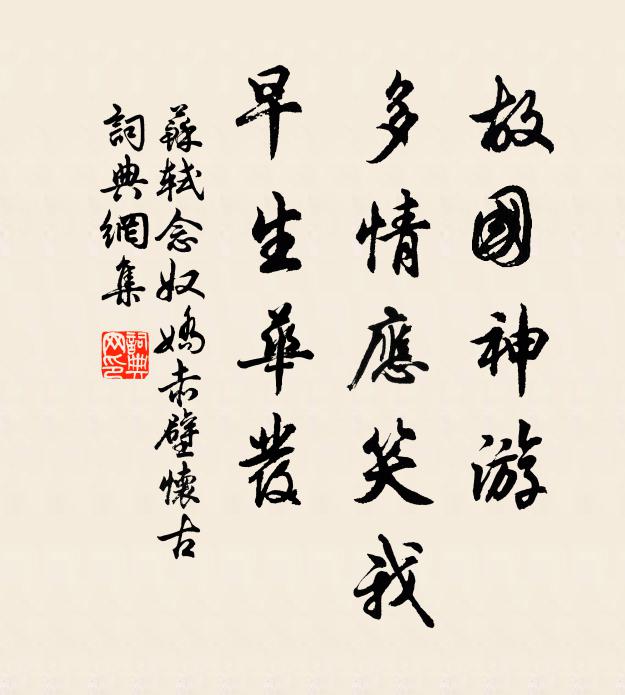 故國神游
多情應笑我
早生華發
蘇軾念奴嬌赤壁懷古
詞典網集
詞典
网印